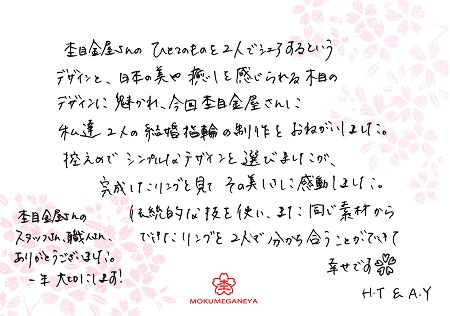 杢目金屋さんの ひとつのものを2人でシェアするという
デザインと、日本の美や癒しを感じられる木目の
デザインに魅かれ、今回杢目金屋さんに
私達2人の結婚指輪の制作をおねがいしました。
控えめでシンプルなデザインを選びましたが、
完成したリングを見て その美しさに感動しました。
伝統的な技を使い、また同じ素材から
できたリングを2人で分かち合うことができて
幸せです
H.T & A.Y
杢目金屋さんの
スタッフさん、職人さん、
ありがとうございました。
一生大切にします!
MOKUMEGANEYA